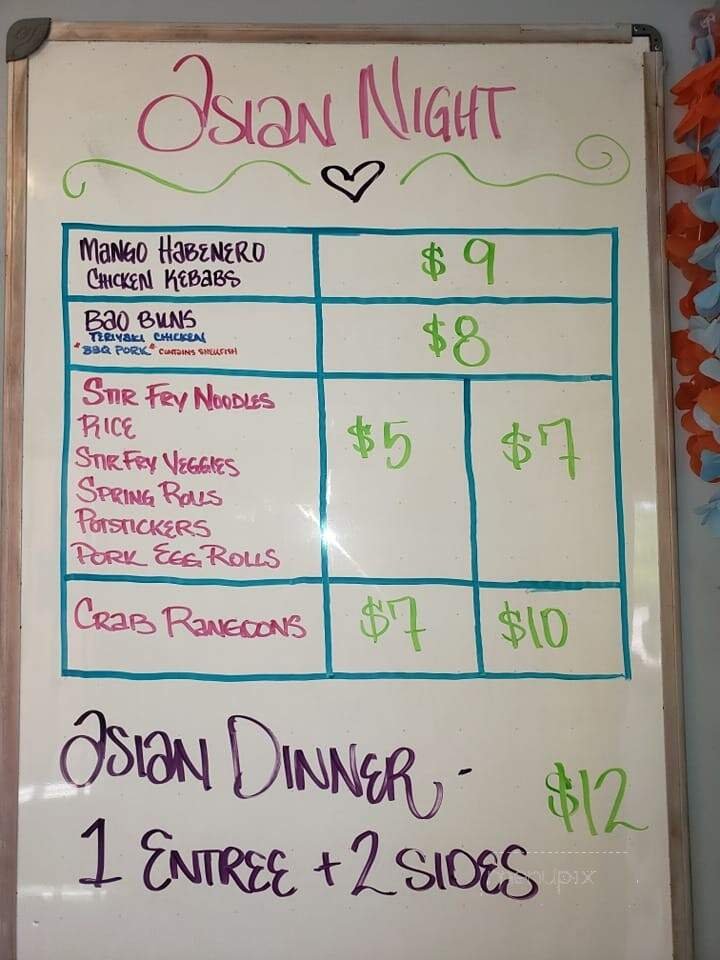 Asian Night
Mango Habenero
Chicken Kebabs
$9
Bao Buns
Teriyaki Chicken
*BBQ Pork* Contains Shellfish
$8
Stir Fry Noodles
Rice
Stir Fry Veggies
Spring Rolls
Potstickers
Pork Egg Rolls
$5
$7
Crab Rangoons
$7
$10
Asian Dinner -
$12
1 Entree + 2 Sides
menupix